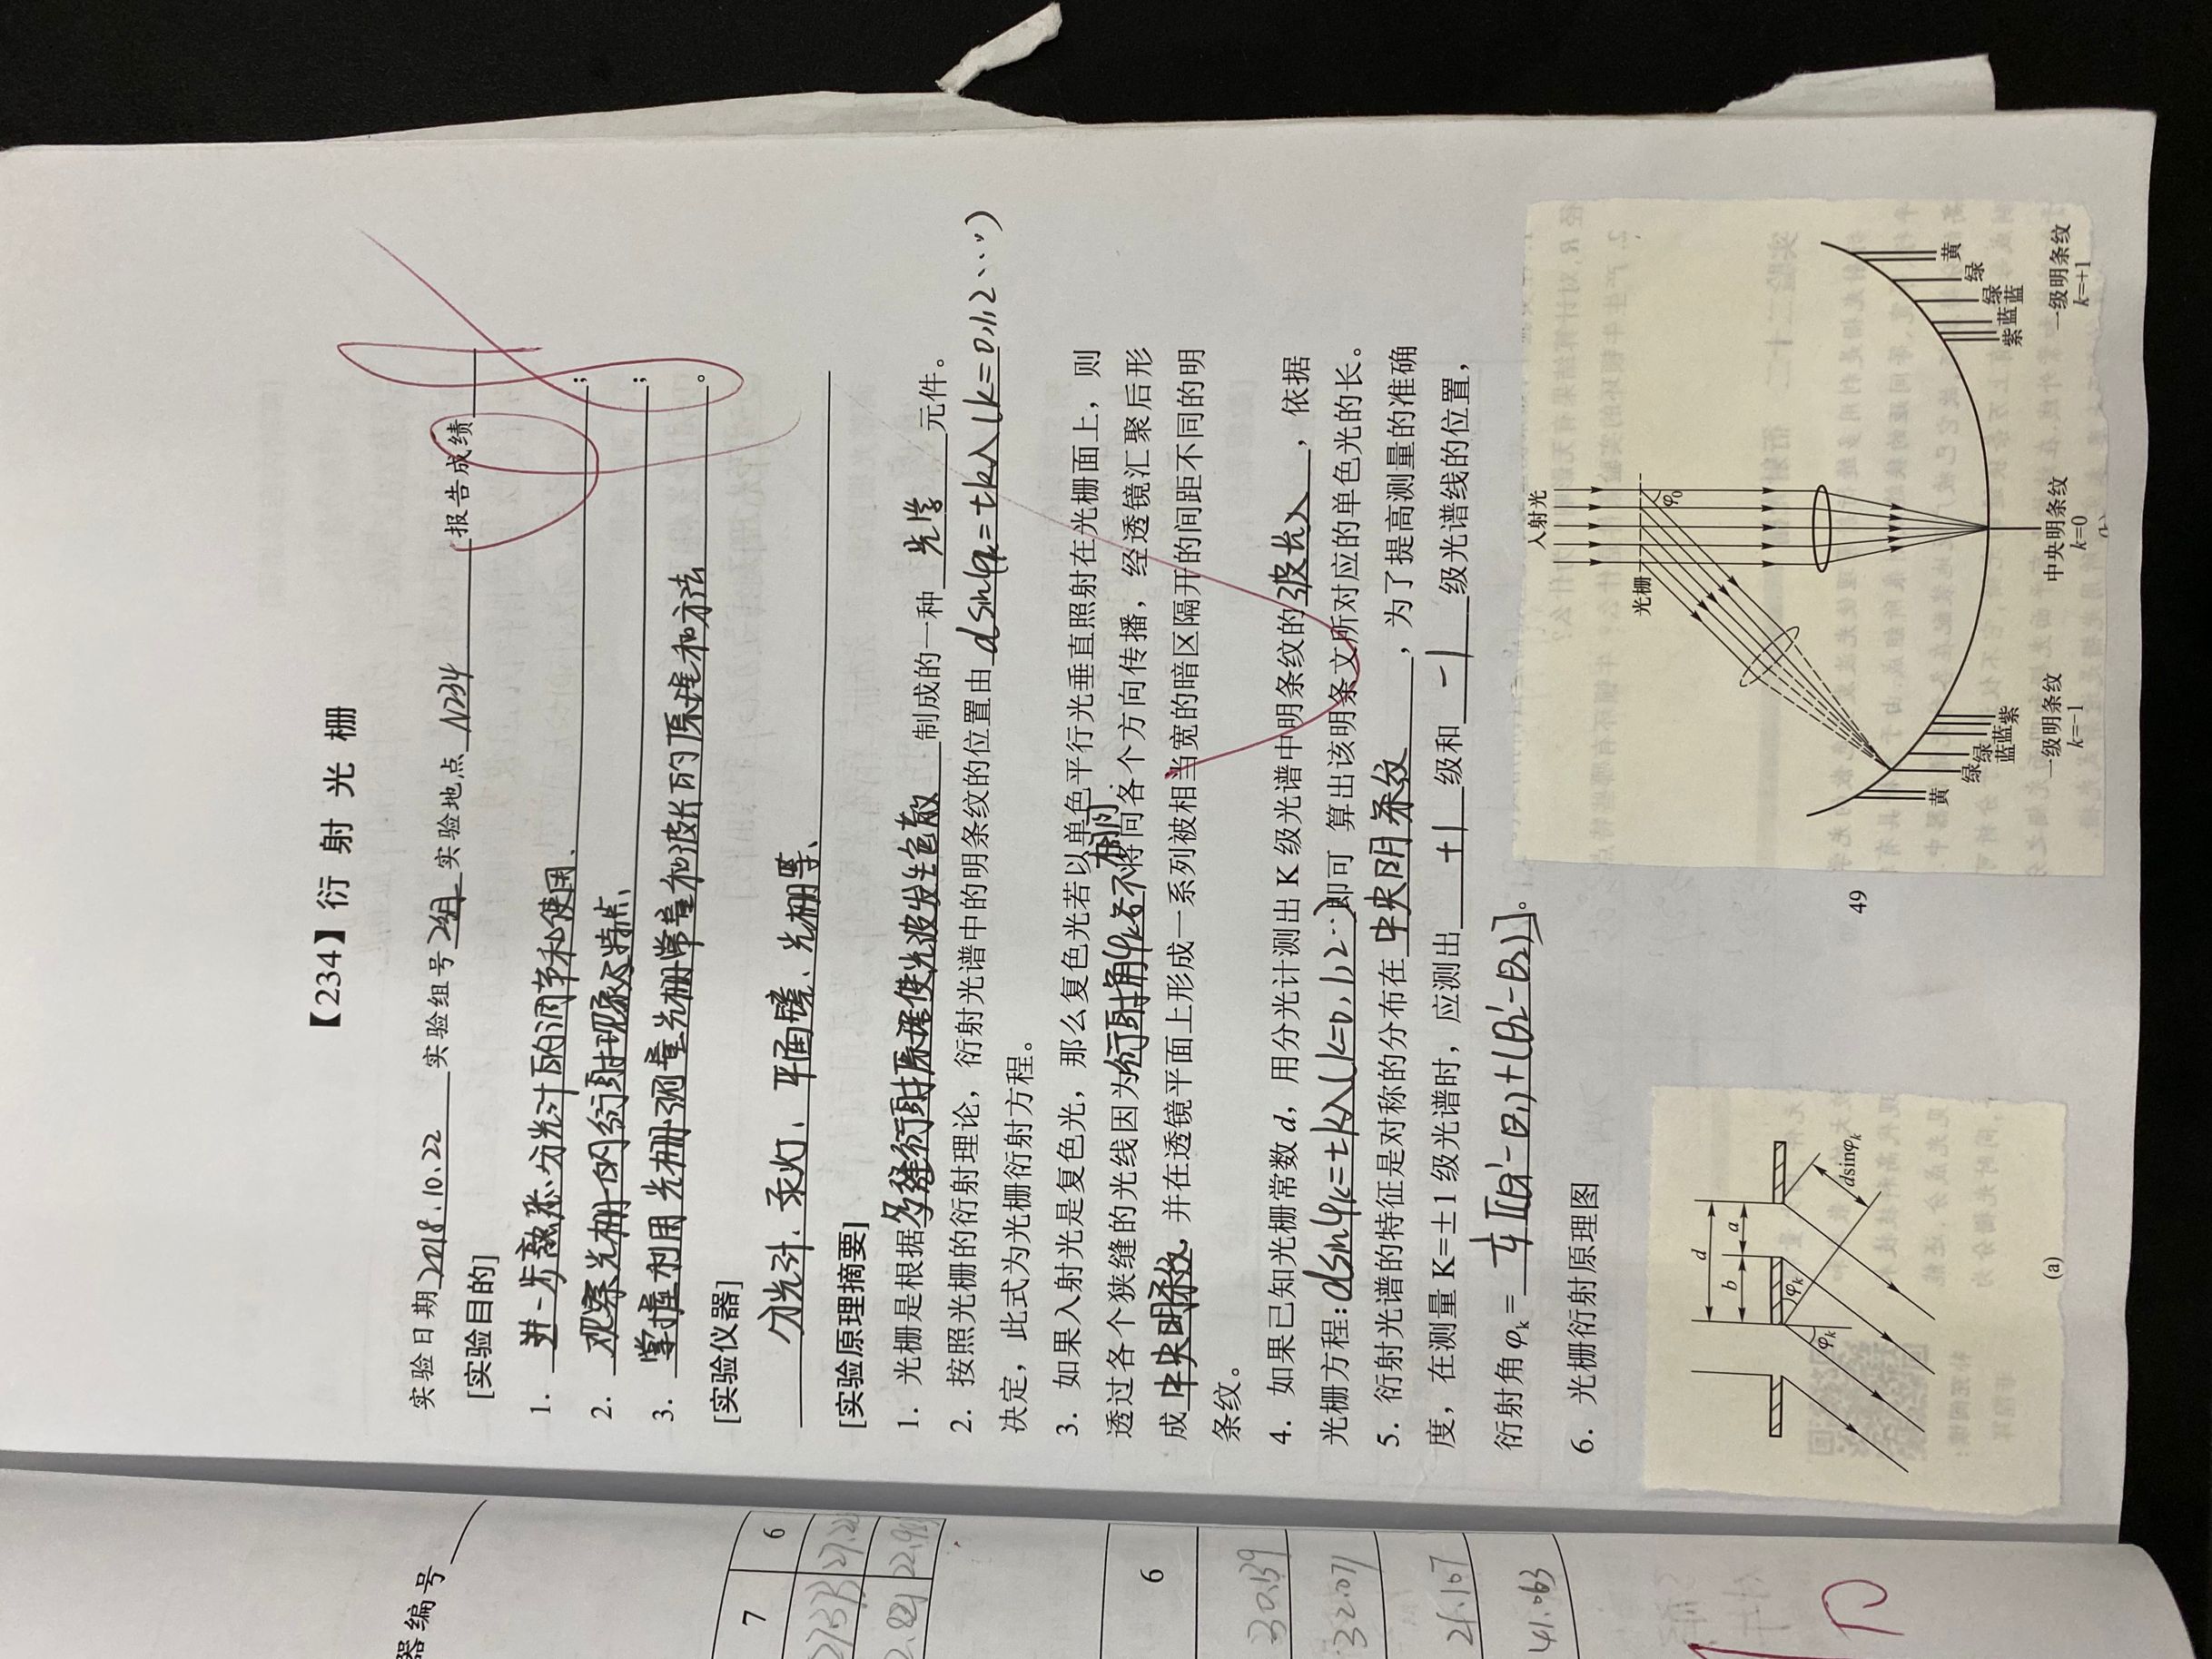 器编号
7 6
27.373
6
30.139
32.071
21.107
41.063
【234】衍射光栅
实验日期2018.10.22 实验组号2组 实验地点 N234 报告成绩
98
[实验目的]
1. 进一步熟悉分光计的调节和使用. ;
2. 观察光栅的衍射现象及特点、 ;
3. 掌握利用光栅测量光栅常量和波长的原理和方法 。
[实验仪器]
分光计、汞灯、平面镜、光栅等、
[实验原理摘要]
1. 光栅是根据多缝衍射原理使光波发生色散制成的一种 光学 元件。
2. 按照光栅的衍射理论，衍射光谱中的明条纹的位置由 dsinφk=±kλ(k=0,1,2…)
决定，此式为光栅衍射方程。
3. 如果入射光是复色光，那么复色光若以单色平行光垂直照射在光栅面上，则
透过各个狭缝的光线因为衍射角φk各不相同.将向各个方向传播，经透镜汇聚后形
成 中央明条纹，并在透镜平面上形成一系列被相当宽的暗区隔开的间距不同的明
条纹。
4. 如果已知光栅常数 d，用分光计测出 K 级光谱中明条纹的波长λ，依据
光栅方程:dsinφk=±kλ(k=0,1,2…)即可 算出该明条文所对应的单色光的长。
5. 衍射光谱的特征是对称的分布在 中央明条纹 ，为了提高测量的准确
度，在测量 K=±1 级光谱时，应测出 +1 级和 -1 级光谱线的位置，
衍射角φk= 1/4[(θ1'-θ1)+(θ2'-θ2)]。
6. 光栅衍射原理图
入射光
光栅
φ0
d
b a
φk
φk
dsinφk
(a)
49
黄 绿 绿蓝 蓝 紫
紫 蓝 绿蓝 绿 黄
一级明条纹 中央明条纹 一级明条纹
k=−1 k=0 k=+1